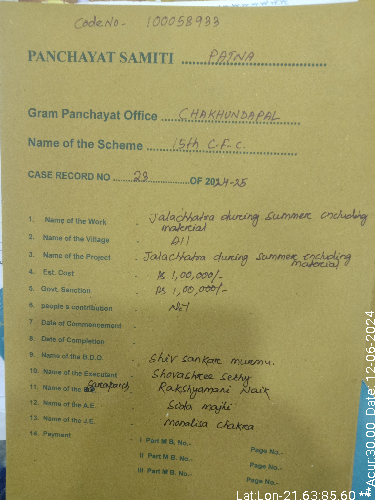 Code No- 100058933
PANCHAYAT SAMITI PATNA
Gram Panchayat Office CHAKHUNDAPAL
Name of the Scheme 15th C.F.C.
CASE RECORD NO 23 OF 2024-25
1. Name of the Work - Jalachhatra during Summer including material
2. Name of the Village - All
3. Name of the Project - Jalachhatra during Summer including material
4. Est. Cost - Rs 1,00,000/-
5. Govt. Sanction - Rs 1,00,000/-
6. people's contribution - Nil
7. Date of Commencement -
8. Date of Completion -
9. Name of the B.D.O. - Shiv sankar murmu.
10. Name of the Executant - Shovashree Sethy
11. Name of the Sarapanch - Rakshyamani Naik
12. Name of the A.E. - majhi
13. Name of the J.E. - Monalisa Chakra
14. Payment - I Part M B, No.- Page No.-
II Part M B. No.- Page No.-
III Part M B. No.- Page No.-
Lat:Lon-21.63:85.60 **Acur:30.00, Date: 12-06-2024